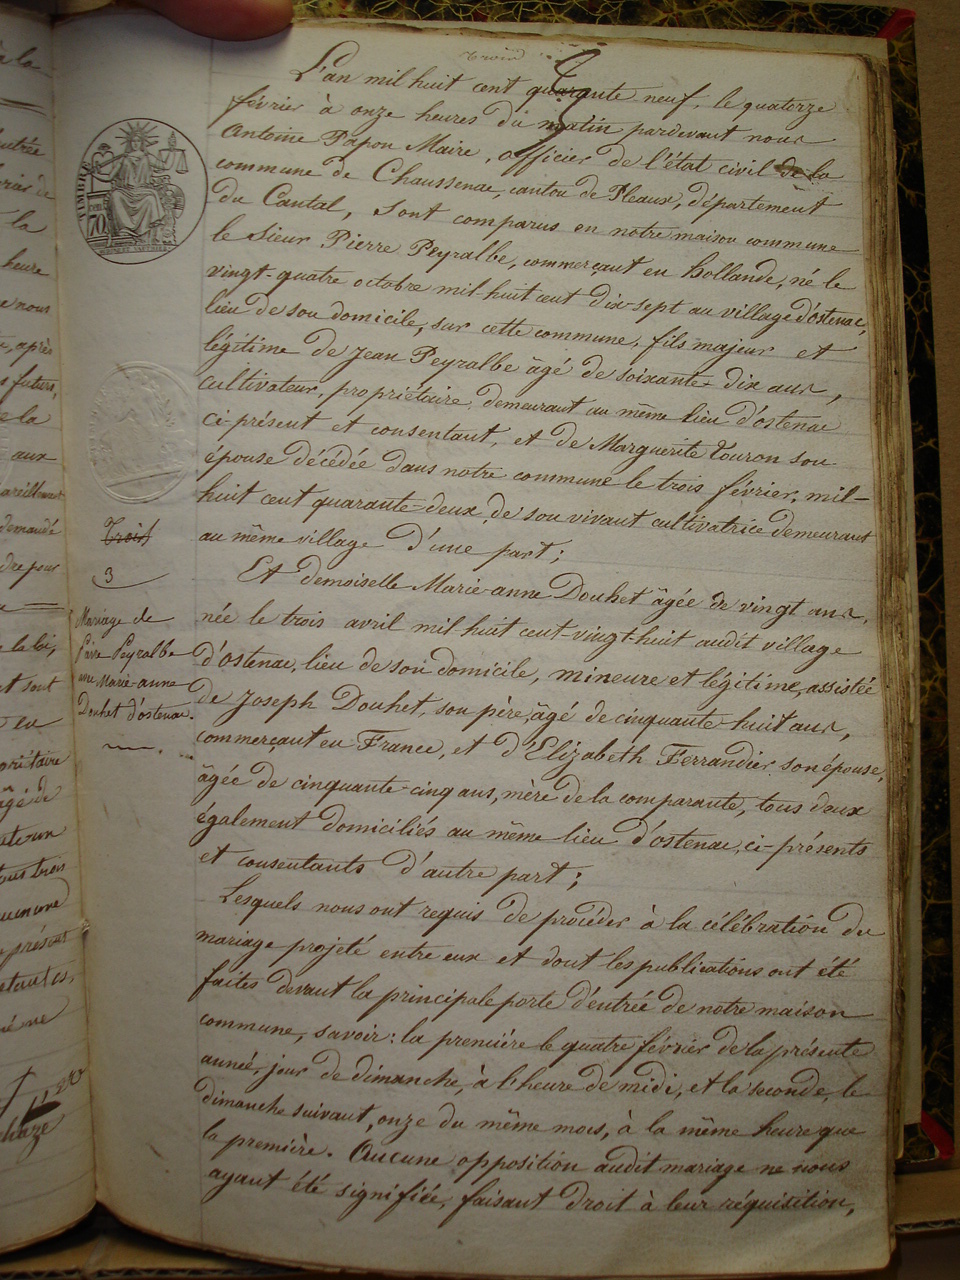 trois
3
L'an mil huit cent quarante-neuf, le quatorze
février à onze heures du matin pardevant nous
Antoine Papon Maire, officier de l'état civil de la
commune de Chaussenac, canton de Pleaux, département
du Cantal, sont comparus en notre maison commune
le sieur Pierre Peyralbe, commerçant en hollande, né le
vingt-quatre octobre mil huit cent dix-sept au village d'ostenac,
lieu de son domicile, sur cette commune, fils majeur et
légitime de Jean Peyralbe âgé de soixante-dix ans,
cultivateur, propriétaire demeurant au même lieu d'ostenac
ci-présent et consentant, et de Marguerite Touron son
épouse décédée dans notre commune le trois février, mil-
huit cent quarante-deux, de son vivant cultivatrice demeurant
au même village d'une part;
Et demoiselle Marie-anne Douhet âgée de vingt ans,
née le trois avril mil huit cent-vingt-huit audit village
d'ostenac, lieu de son domicile, mineure et légitime, assistée
de Joseph Douhet, son père, âgé de cinquante-huit ans,
commerçant en France, et d'Elizabeth Ferrandier son épouse,
âgée de cinquante-cinq ans, mère de la comparante, tous deux
également domiciliés au même lieu d'ostenac, ci-présents
et consentants d'autre part;
Lesquels nous ont requis de procéder à la célébration du
mariage projeté entre eux et dont les publications ont été
faites devant la principale porte d'entrée de notre maison
commune, savoir: la première le quatre février de la présente
année, jour de dimanche, à l'heure de midi, et la seconde, le
dimanche suivant, onze du même mois, à la même heure que
la première. Aucune opposition audit mariage ne nous
ayant été signifiée, faisant droit à leur réquisition,
TIMBRE
70
Trois
3
Mariage de
Peyralbe
avec Marie-anne
Douhet d'ostenac.
la
heure
nous
, après
futurs,
de la
aux
demandé
dre pour
la loi,
et sont
en
propriétaire
âgé de
tous trois
présent